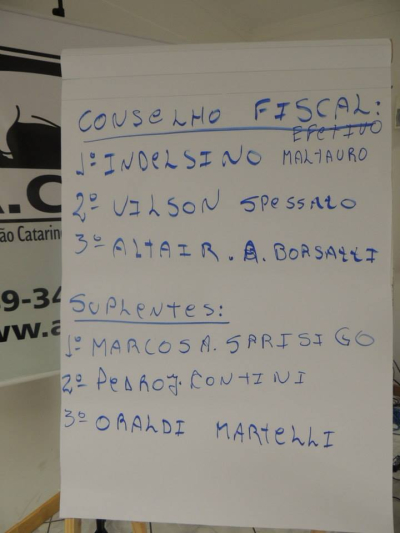 CONSELHO FISCAL:
EFETIVO
1º INDELSINO MALTAURO
2º VILSON SPESSATO
3º ALTAIR. A. BORSATTI
SUPLENTES:
1º MARCOS A. SPRISIGO
2º PEDRO J. CONTINI
3º ORALDI MARTELLI
.C
ão Catarin
9-34
w.a